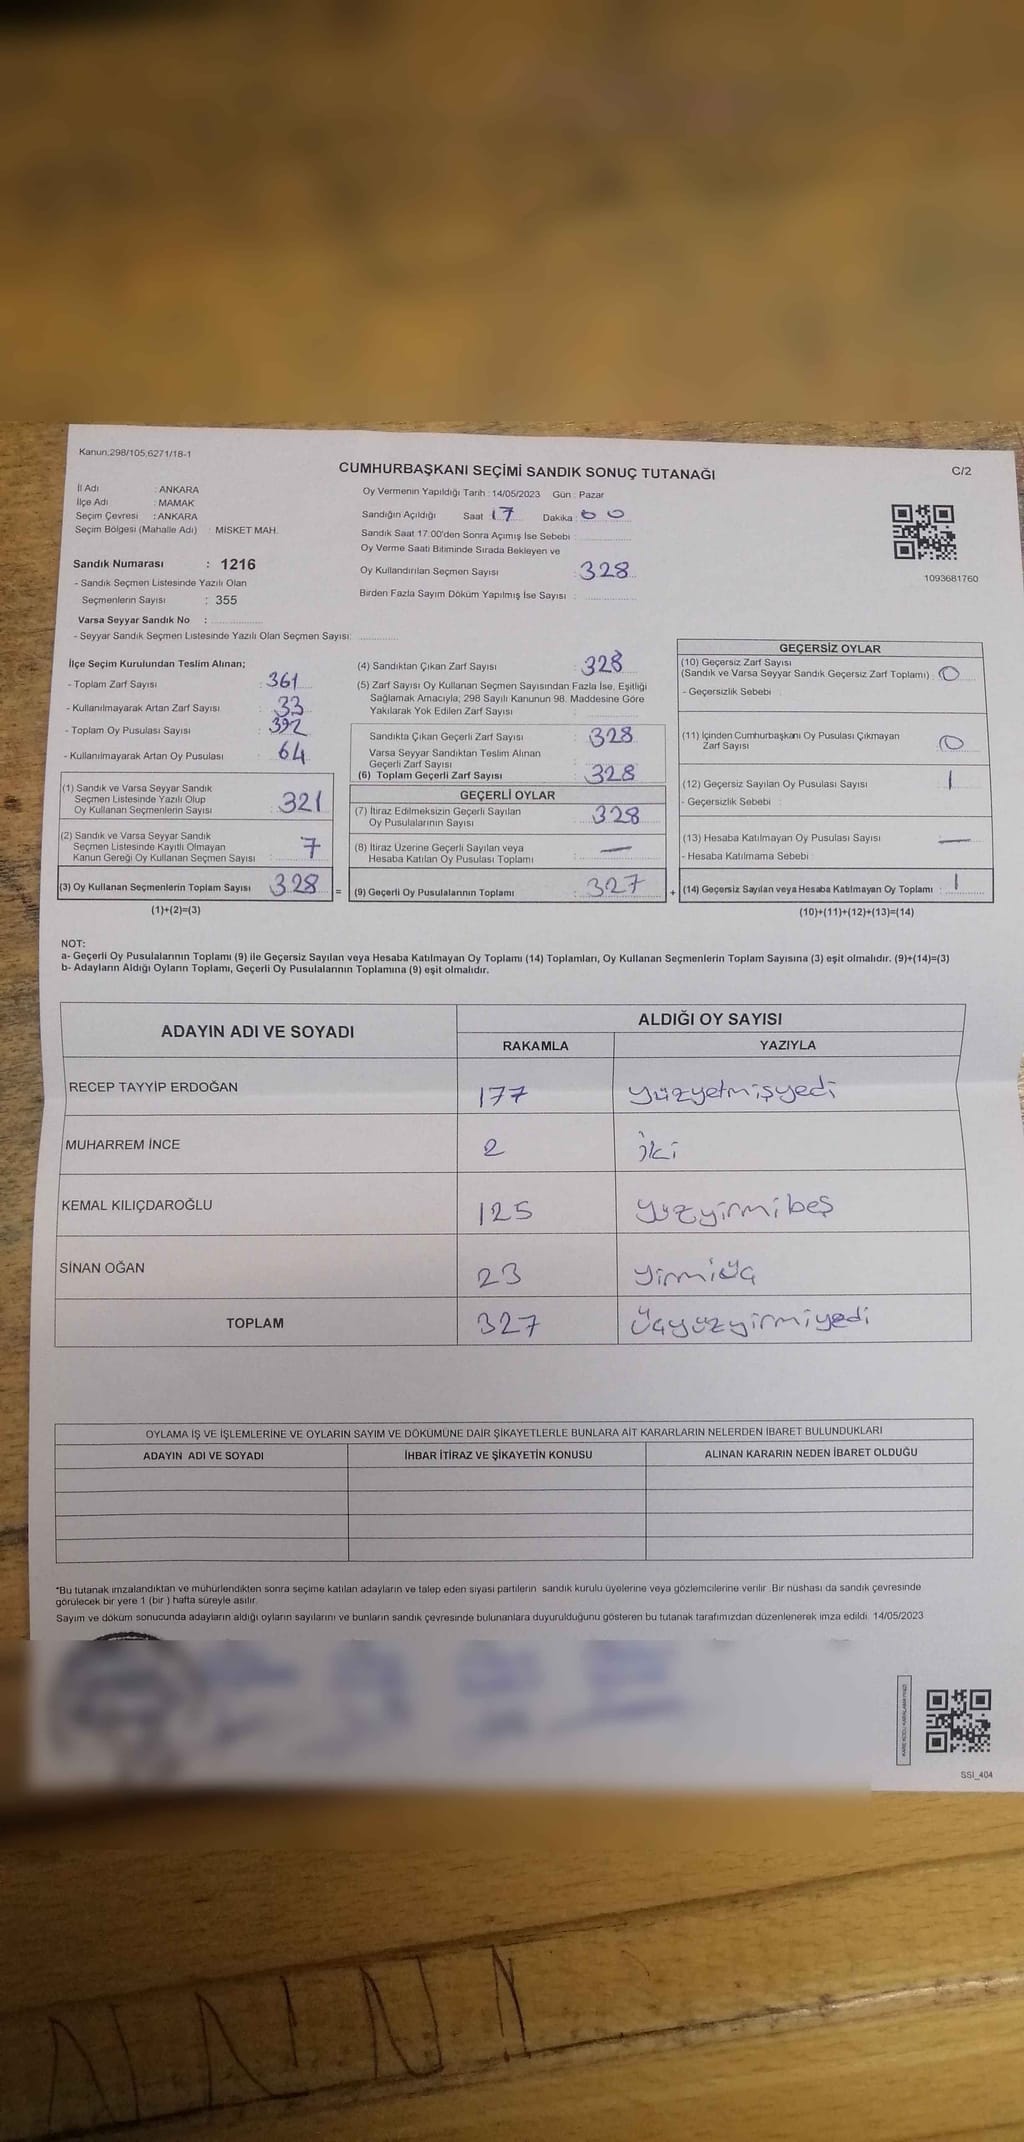 Kanun,298/105,6271/18-1
CUMHURBAŞKANI SEÇİMİ SANDIK SONUÇ TUTANAĞI
C/2
İl Adı : ANKARA
İlçe Adı : MAMAK
Seçim Çevresi : ANKARA
Seçim Bölgesi (Mahalle Adı) : MİSKET MAH.
Sandık Numarası : 1216
- Sandık Seçmen Listesinde Yazılı Olan
Seçmenlerin Sayısı : 355
Varsa Seyyar Sandık No :
- Seyyar Sandık Seçmen Listesinde Yazılı Olan Seçmen Sayısı:
Oy Vermenin Yapıldığı Tarih : 14/05/2023 Gün : Pazar
Sandığın Açıldığı Saat 17 Dakika 00
Sandık Saat 17:00'den Sonra Açımış İse Sebebi :
Oy Verme Saati Bitiminde Sırada Bekleyen ve
Oy Kullandırılan Seçmen Sayısı : 328
Birden Fazla Sayım Döküm Yapılmış İse Sayısı :
1093681760
İlçe Seçim Kurulundan Teslim Alınan;
- Toplam Zarf Sayısı : 361
- Kullanılmayarak Artan Zarf Sayısı : 33
- Toplam Oy Pusulası Sayısı : 392
- Kullanılmayarak Artan Oy Pusulası : 64
(1) Sandık ve Varsa Seyyar Sandık
Seçmen Listesinde Yazılı Olup
Oy Kullanan Seçmenlerin Sayısı : 321
(2) Sandık ve Varsa Seyyar Sandık
Seçmen Listesinde Kayıtlı Olmayan
Kanun Gereği Oy Kullanan Seçmen Sayısı : 7
(3) Oy Kullanan Seçmenlerin Toplam Sayısı 328 =
(1)+(2)=(3)
(4) Sandıktan Çıkan Zarf Sayısı : 328
(5) Zarf Sayısı Oy Kullanan Seçmen Sayısından Fazla İse, Eşitliği
Sağlamak Amacıyla; 298 Sayılı Kanunun 98. Maddesine Göre
Yakılarak Yok Edilen Zarf Sayısı :
Sandıkta Çıkan Geçerli Zarf Sayısı : 328
Varsa Seyyar Sandıktan Teslim Alınan
Geçerli Zarf Sayısı :
(6) Toplam Geçerli Zarf Sayısı : 328
GEÇERLİ OYLAR
(7) İtiraz Edilmeksizin Geçerli Sayılan
Oy Pusulalarının Sayısı : 328
(8) İtiraz Üzerine Geçerli Sayılan veya
Hesaba Katılan Oy Pusulası Toplamı : —
(9) Geçerli Oy Pusulalarının Toplamı : 327 +
GEÇERSİZ OYLAR
(10) Geçersiz Zarf Sayısı
(Sandık ve Varsa Seyyar Sandık Geçersiz Zarf Toplamı) : 0
- Geçersizlik Sebebi :
(11) İçinden Cumhurbaşkanı Oy Pusulası Çıkmayan
Zarf Sayısı 0
(12) Geçersiz Sayılan Oy Pusulası Sayısı 1
- Geçersizlik Sebebi :
(13) Hesaba Katılmayan Oy Pusulası Sayısı —
- Hesaba Katılmama Sebebi :
(14) Geçersiz Sayılan veya Hesaba Katılmayan Oy Toplamı : 1
(10)+(11)+(12)+(13)=(14)
NOT:
a- Geçerli Oy Pusulalarının Toplamı (9) ile Geçersiz Sayılan veya Hesaba Katılmayan Oy Toplamı (14) Toplamları, Oy Kullanan Seçmenlerin Toplam Sayısına (3) eşit olmalıdır. (9)+(14)=(3)
b- Adayların Aldığı Oyların Toplamı, Geçerli Oy Pusulalarının Toplamına (9) eşit olmalıdır.
ADAYIN ADI VE SOYADI ALDIĞI OY SAYISI
RAKAMLA YAZIYLA
RECEP TAYYİP ERDOĞAN 177 yüzyetmişyedi
MUHARREM İNCE 2 iki
KEMAL KILIÇDAROĞLU 125 yüzyirmibeş
SİNAN OĞAN 23 yirmiüç
TOPLAM 327 üçyüzyirmiyedi
OYLAMA İŞ VE İŞLEMLERİNE VE OYLARIN SAYIM VE DÖKÜMÜNE DAİR ŞİKAYETLERLE BUNLARA AİT KARARLARIN NELERDEN İBARET BULUNDUKLARI
ADAYIN ADI VE SOYADI İHBAR İTİRAZ VE ŞİKAYETİN KONUSU ALINAN KARARIN NEDEN İBARET OLDUĞU
*Bu tutanak imzalandıktan ve mühürlendikten sonra seçime katılan adayların ve talep eden siyasi partilerin sandık kurulu üyelerine veya gözlemcilerine verilir. Bir nüshası da sandık çevresinde
görülecek bir yere 1 (bir ) hafta süreyle asılır.
Sayım ve döküm sonucunda adayların aldığı oyların sayılarını ve bunların sandık çevresinde bulunanlara duyurulduğunu gösteren bu tutanak tarafımızdan düzenlenerek imza edildi. 14/05/2023
KARE KODU KARALAMAYINIZ!
SSİ_404